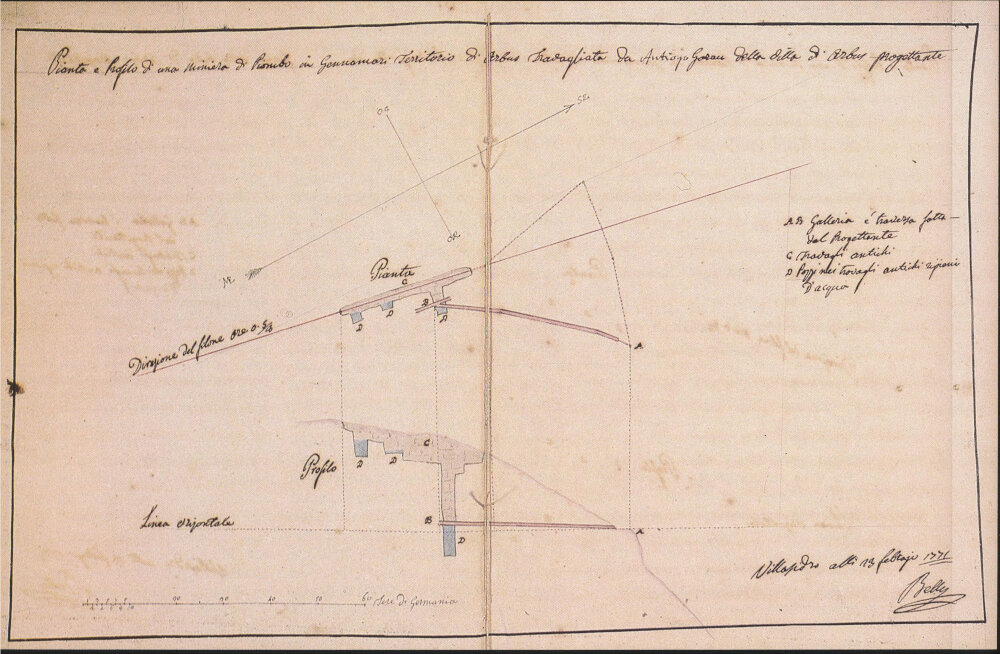 Pianta e Profilo d'una miniera di Piombo in Gennamari Territorio di Arbus Travagliata da Antiogo Garau della Villa d'Arbus progettante
OS
SE
OR
ME
A B Galleria e traversa fatta
dal Progettante
C Travagli antichi
D Pozzi nei travagli antichi ripieni
D'acqua
Pianta
C
B
D
D
A
Direzione del filone Ore 0.5/8
C
D
D
Profilo
Linea Orizontale
B
D
A
Villasidro alli 13 febbrajo 1771
Belly
20
30
40
50
60
Tese di Germania